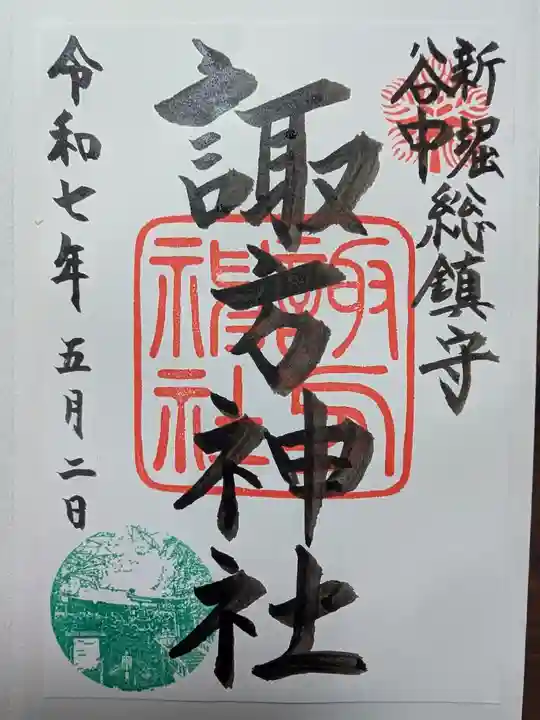 新堀
谷中
総鎮守
諏方神社
令和七年 五月二日